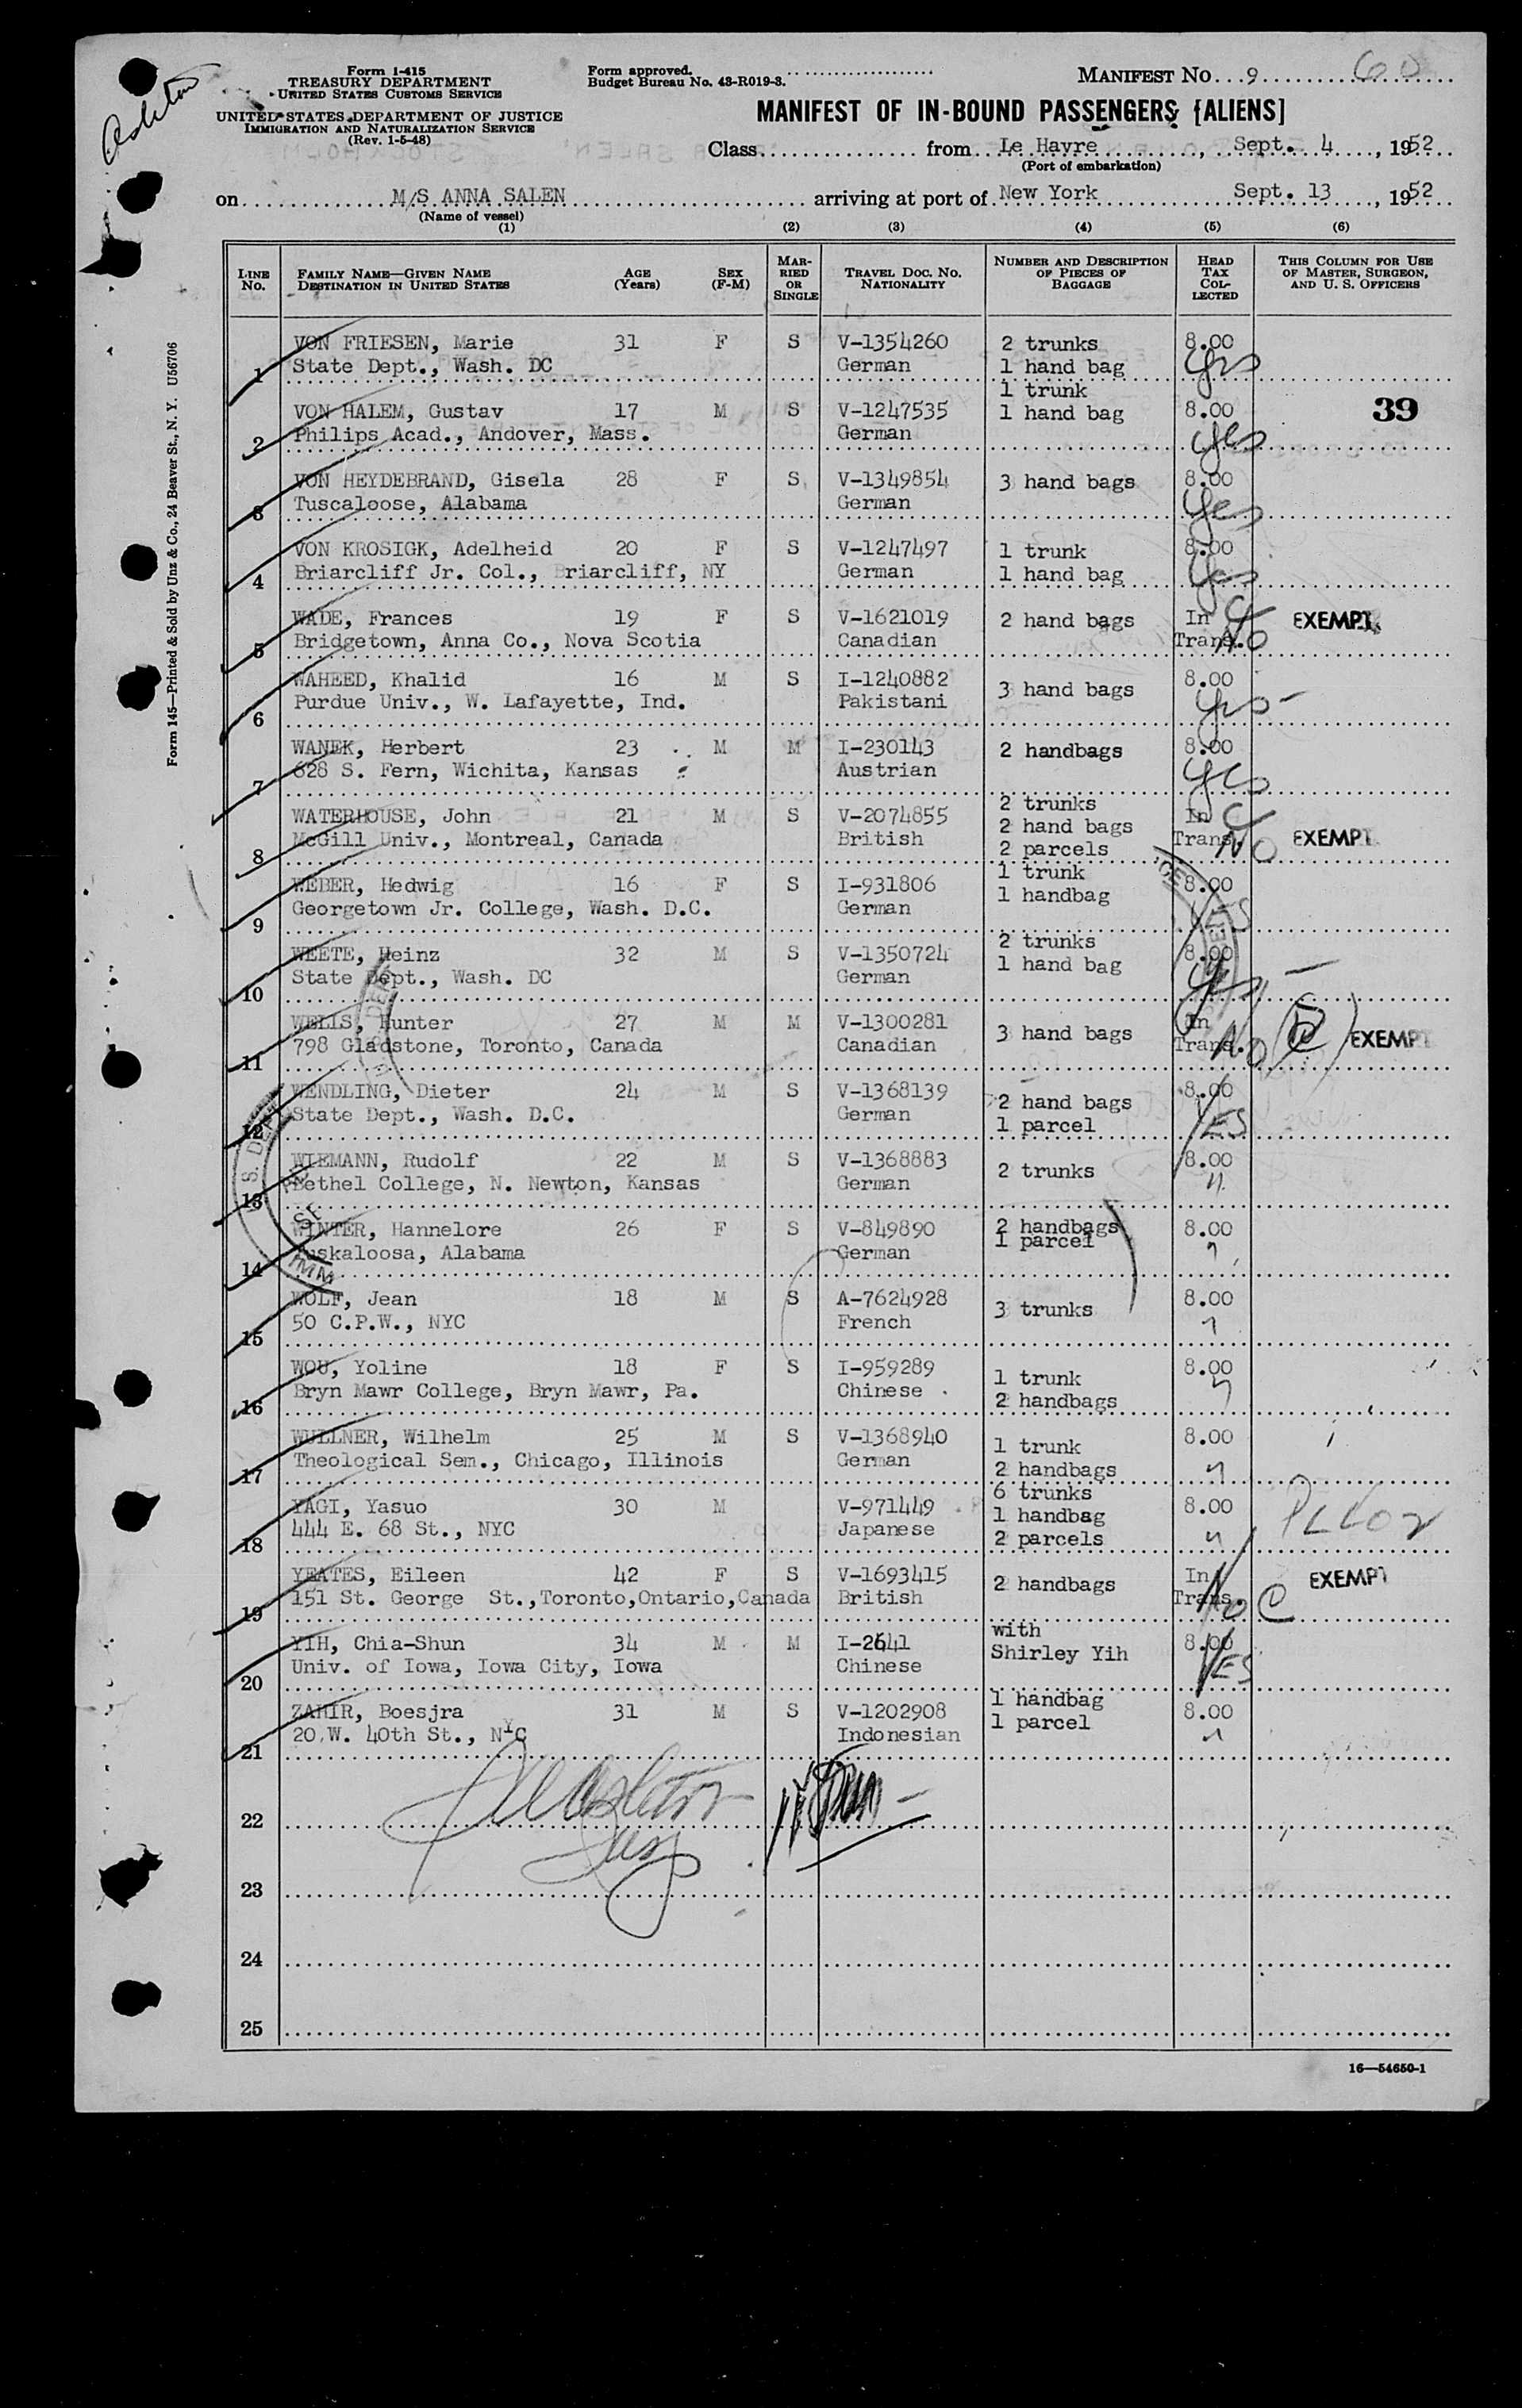 Form I-415
TREASURY DEPARTMENT
UNITED STATES CUSTOMS SERVICE
UNITED STATES DEPARTMENT OF JUSTICE
IMMIGRATION AND NATURALIZATION SERVICE
(Rev. 1-5-48)
Form approved.
Budget Bureau No. 43-R019-3.
MANIFEST NO. 9 60
MANIFEST OF IN-BOUND PASSENGERS [ALIENS]
Class from Le Havre, Sept. 4, 1952
(Port of embarkation)
on M/S ANNA SALEN arriving at port of New York Sept. 13, 1952
(Name of vessel)
(1) (2) (3) (4) (5) (6)
LINE NO. FAMILY NAME—GIVEN NAME DESTINATION IN UNITED STATES AGE (Years) SEX (F-M) MARRIED OR SINGLE TRAVEL DOC. NO. NATIONALITY NUMBER AND DESCRIPTION OF PIECES OF BAGGAGE HEAD TAX COLLECTED THIS COLUMN FOR USE OF MASTER, SURGEON, AND U. S. OFFICERS
Ashton
Form 145—Printed & Sold by Unz & Co., 24 Beaver St., N. Y. U56706
39
1 VON FRIESEN, Marie 31 F S V-1354260 2 trunks 8.00
State Dept., Wash. DC German 1 hand bag yes
2 VON HALEM, Gustav 17 M S V-1247535 1 trunk 1 hand bag 8.00
Philips Acad., Andover, Mass. German yes
3 VON HEYDEBRAND, Gisela 28 F S V-1349854 3 hand bags 8.00
Tuscaloose, Alabama German yes
4 VON KROSIGK, Adelheid 20 F S V-1247497 1 trunk 8.00
Briarcliff Jr. Col., Briarcliff, NY German 1 hand bag yes
5 WADE, Frances 19 F S V-1621019 2 hand bags In EXEMPT
Bridgetown, Anna Co., Nova Scotia Canadian Trans. No
6 WAHEED, Khalid 16 M S I-1240882 3 hand bags 8.00
Purdue Univ., W. Lafayette, Ind. Pakistani yes
7 WANEK, Herbert 23 M M I-230143 2 handbags 8.00
628 S. Fern, Wichita, Kansas Austrian yes
8 WATERHOUSE, John 21 M S V-2074855 2 trunks 2 hand bags In
McGill Univ., Montreal, Canada British 2 parcels Trans. NO EXEMPT
9 WEBER, Hedwig 16 F S I-931806 1 trunk 8.00
Georgetown Jr. College, Wash. D.C. German 1 handbag YES
10 WEETE, Heinz 32 M S V-1350724 2 trunks 8.00
State Dept., Wash. DC German 1 hand bag yes
11 WELLS, Hunter 27 M M V-1300281 3 hand bags In
798 Gladstone, Toronto, Canada Canadian Trans. No EXEMPT
12 WENDLING, Dieter 24 M S V-1368139 2 hand bags 8.00
State Dept., Wash. D.C. German 1 parcel YES
13 WIEMANN, Rudolf 22 M S V-1368883 2 trunks 8.00
Bethel College, N. Newton, Kansas German
14 WINTER, Hannelore 26 F S V-849890 2 handbags 8.00
Tuskaloosa, Alabama German 1 parcel
15 WOLF, Jean 18 M S A-7624928 3 trunks 8.00
50 C.P.W., NYC French
16 WOU, Yoline 18 F S I-959289 1 trunk 8.00
Bryn Mawr College, Bryn Mawr, Pa. Chinese 2 handbags
17 WULLNER, Wilhelm 25 M S V-1368940 1 trunk 8.00
Theological Sem., Chicago, Illinois German 2 handbags
18 YAGI, Yasuo 30 M V-971449 6 trunks 1 handbag 8.00
444 E. 68 St., NYC Japanese 2 parcels
19 YEATES, Eileen 42 F S V-1693415 2 handbags In EXEMPT
151 St. George St.,Toronto,Ontario,Canada British Trans. No C
20 YIH, Chia-Shun 34 M M I-2641 with Shirley Yih 8.00
Univ. of Iowa, Iowa City, Iowa Chinese YES
21 ZAHIR, Boesjra 31 M S V-1202908 1 handbag 8.00
20 W. 40th St., NYC Indonesian 1 parcel
22
23
24
25
16—54650-1